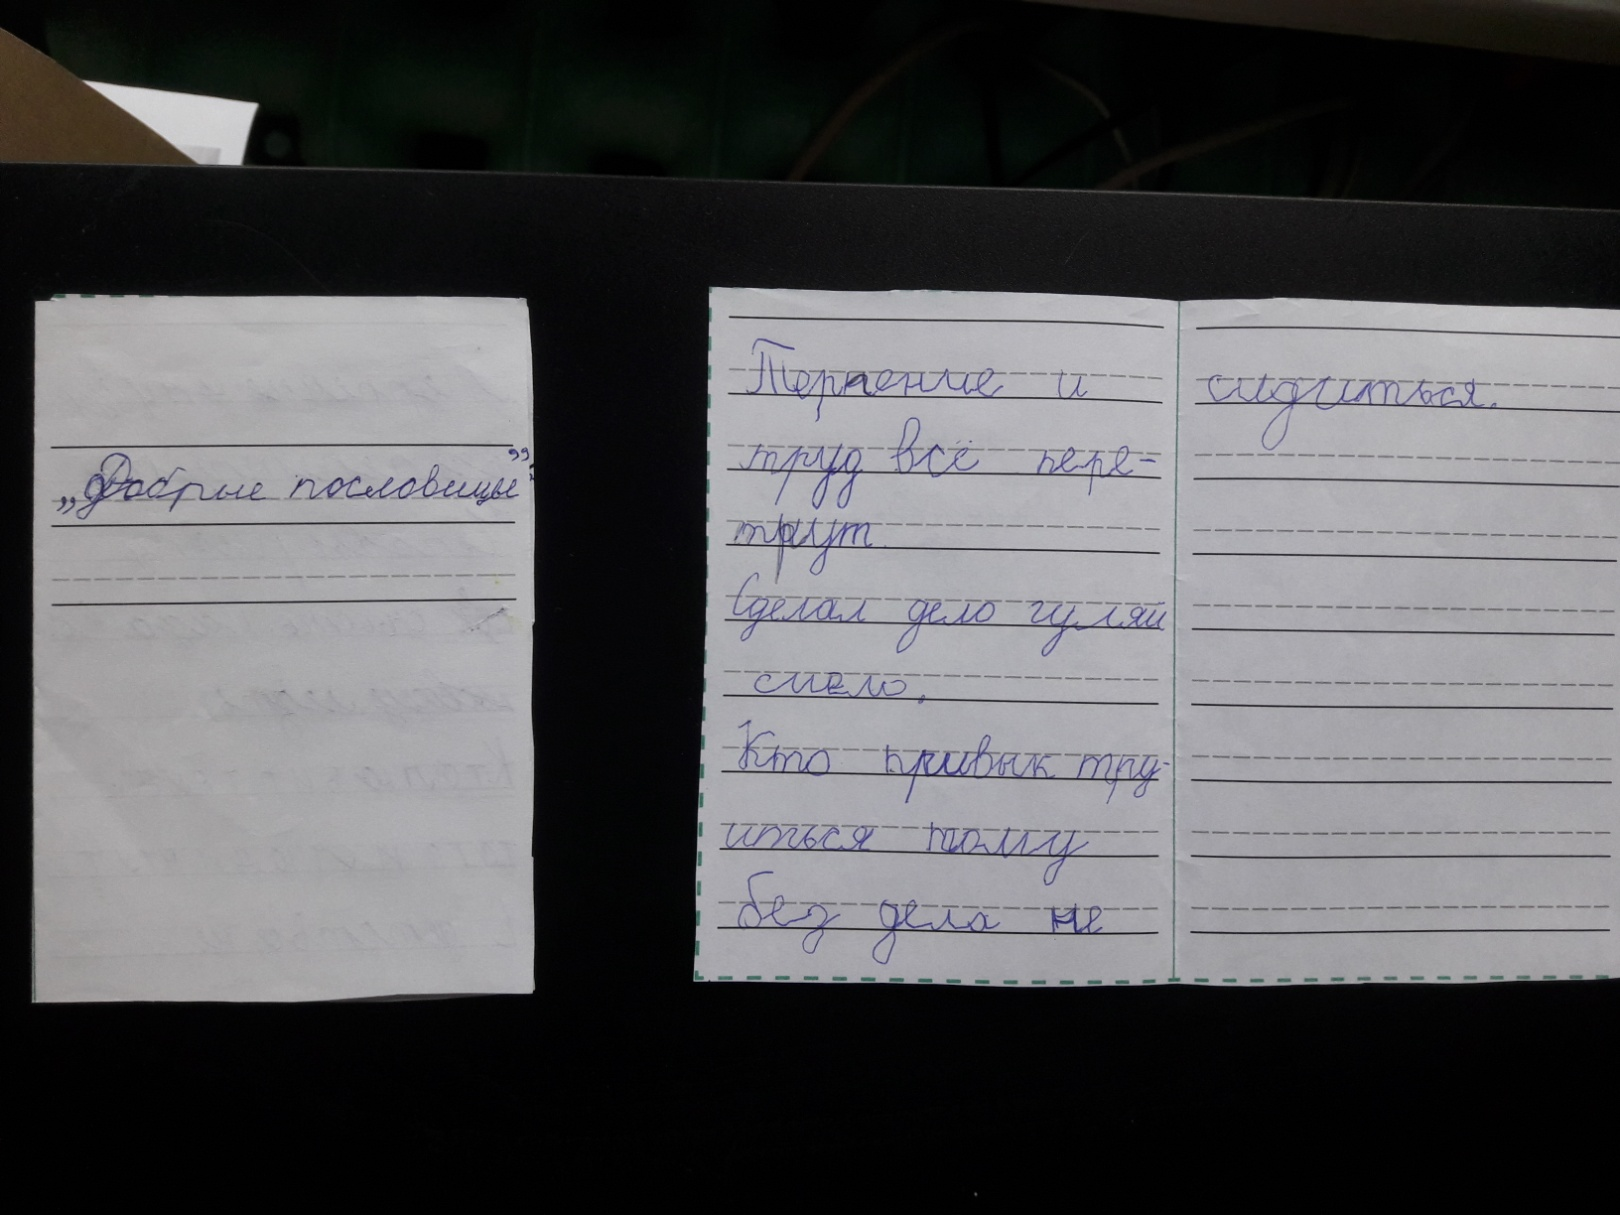 „Добрые пословицы”
Терпение и
труд всё пере-
трут
Сделал дело гуляй
смело.
Кто привык тру-
иться тому
без дела не
сидиться.